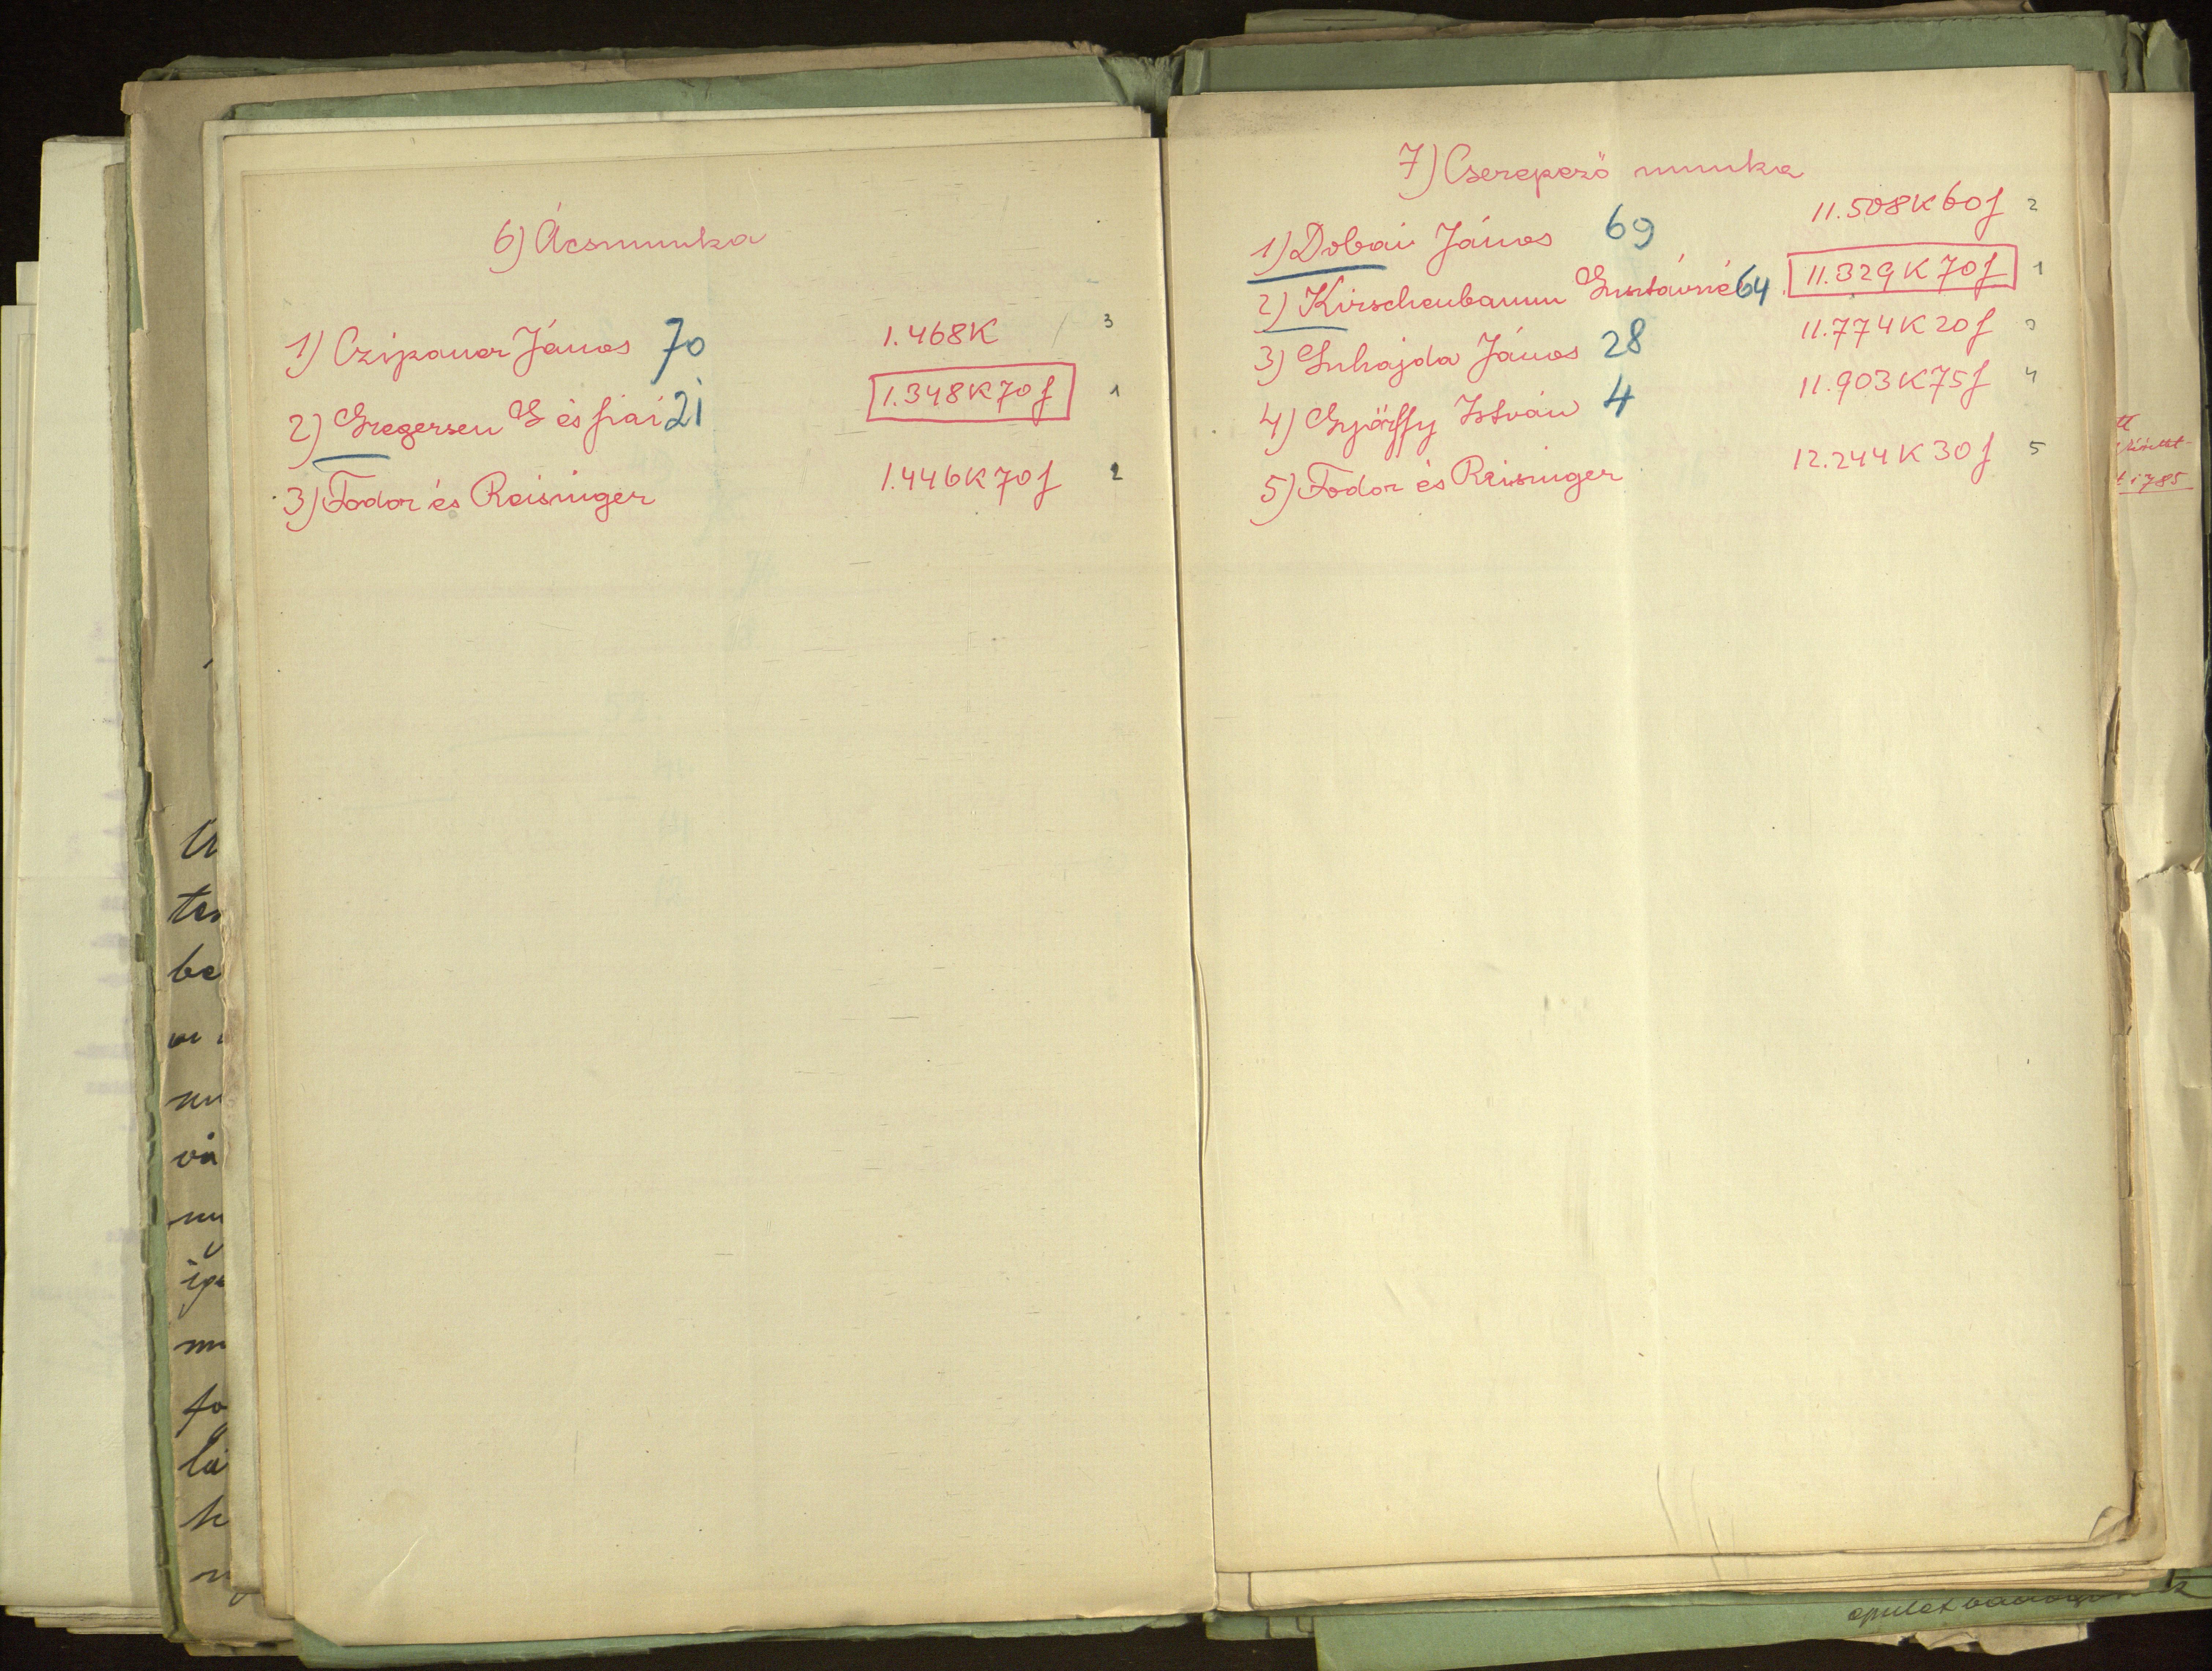 6) Ácsmunka
1) Czipauer János 70 1.468K 3
2) Gregersen G és fiai 21 1.348K70f 1
3) Fodor és Reisinger 1.446K70f 2
7) Cserepező munka
1) Dobai János 69 11.508K60f 2
2) Kirschenbaum Gusztávné 64 11.329K70f 1
3) Suhajda János 28 11.774K20f 3
4) Györffy István 4 11.903K75f 4
5) Fodor és Reisinger 12.244K30f 5
be
vá
fo
lá